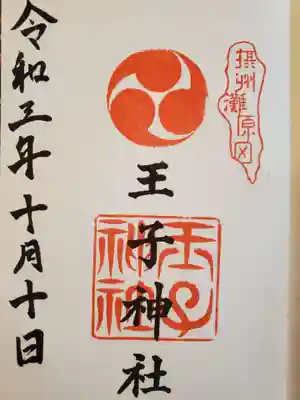 摂州
灘原田
王子神社
王子神社
令和三年十月十日